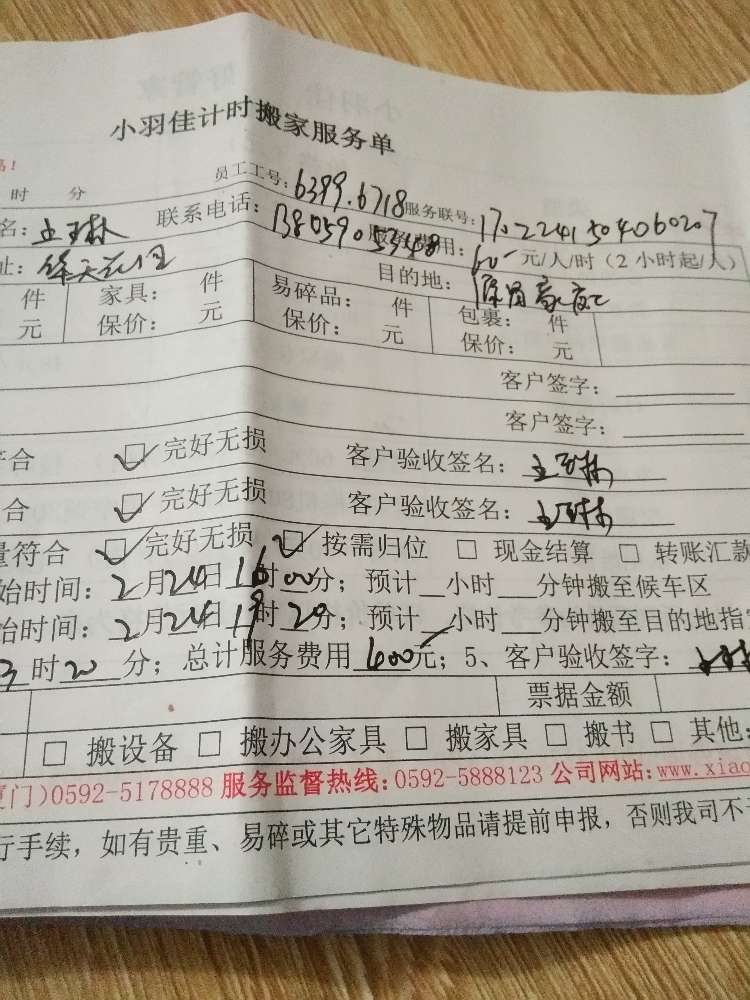 小羽佳计时搬家服务单
时 分 员工工号：6399.6718 服务联号：1702241504060207
名： 联系电话： 服务费用：60 元/人/时（2小时起/人）
址： 目的地：
件 家具： 件 易碎品： 件 包裹： 件
元 保价： 元 保价： 元 保价： 元
客户签字：
客户签字：
符合 完好无损 客户验收签名：
合 完好无损 客户验收签名：
量符合 完好无损 按需归位 □ 现金结算 □ 转账汇款
始时间：2月24日16时00分；预计__小时___分钟搬至候车区
始时间：2月24日19时20分；预计__小时___分钟搬至目的地指
3时20分；总计服务费用600元；5、客户验收签字：
票据金额
□ 搬设备 □ 搬办公家具 □ 搬家具 □ 搬书 □ 其他：
厦门)0592-5178888 服务监督热线：0592-5888123 公司网站：www.xiao
行手续，如有贵重、易碎或其它特殊物品请提前申报，否则我司不